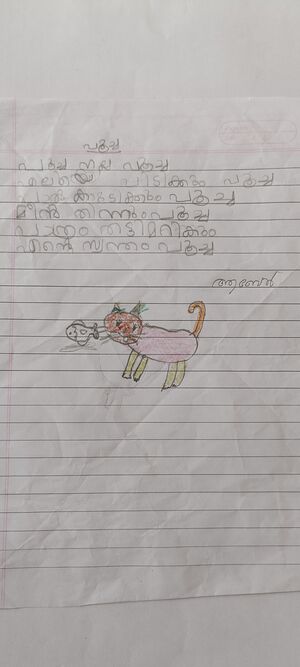 പൂച്ച
പൂച്ച നല്ല പൂച്ച
എലിയെ പിടിക്കും പൂച്ച
പാൽ കുടിക്കും പൂച്ച
മീൻ തിന്നും പൂച്ച
പാത്രം തട്ടിമറിക്കും
എന്റെ സ്വന്തം പൂച്ച